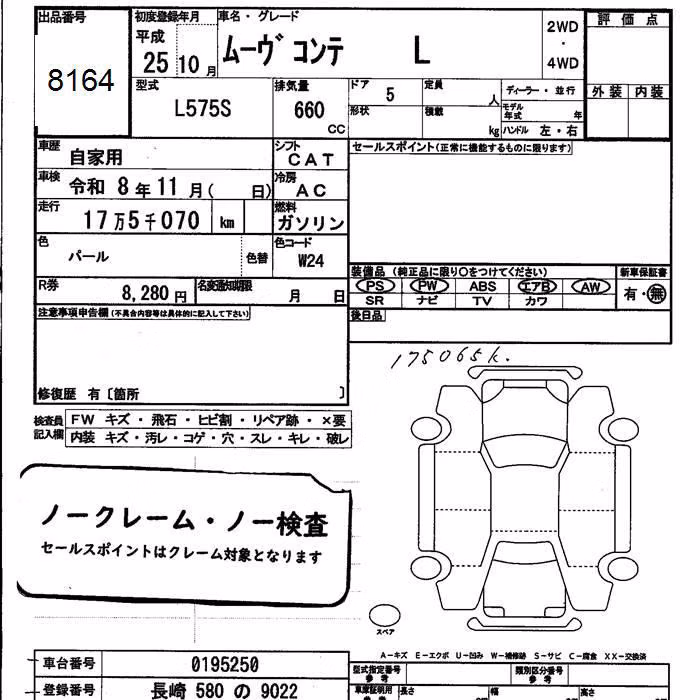 出品番号
8164
初度登録年月
平成
25 10 月
車名・グレード
ムーヴ コンテ L
2WD
・
4WD
評価点
外装 内装
型式
L575S
排気量
660
CC
ドア
5
定員
人
形状
積載
kg
ディーラー・並行
モデル年式 年
ハンドル 左・右
車歴
自家用
シフト
CAT
セールスポイント(正常に機能するものに限ります)
車検
令和 8 年 11 月( 日)
冷房
AC
走行
17 万 5 千 070 km
燃料
ガソリン
色
パール
色替
色コード
W24
R券
8,280 円
名変通知期限
月 日
装備品 (純正品に限り○をつけてください)
PS PW ABS エアB AW
SR ナビ TV カワ
新車保証書
有・無
後日品
注意事項申告欄(不具合内容等は具体的に記入して下さい)
修復歴 有〔箇所 〕
175065k.
検査員記入欄
FW キズ・飛石・ヒビ割・リペア跡・×要
内装 キズ・汚レ・コゲ・穴・スレ・キレ・破レ
ノークレーム・ノー検査
セールスポイントはクレーム対象となります
スペア
A−キズ E−エクボ U−凹み W−補修跡 S−サビ C−腐食 XX−交換済
車台番号
0195250
登録番号
長崎 580 の 9022
型式指定番号
参考
類別区分番号
参考
車庫証明用
長さ
幅
高さ